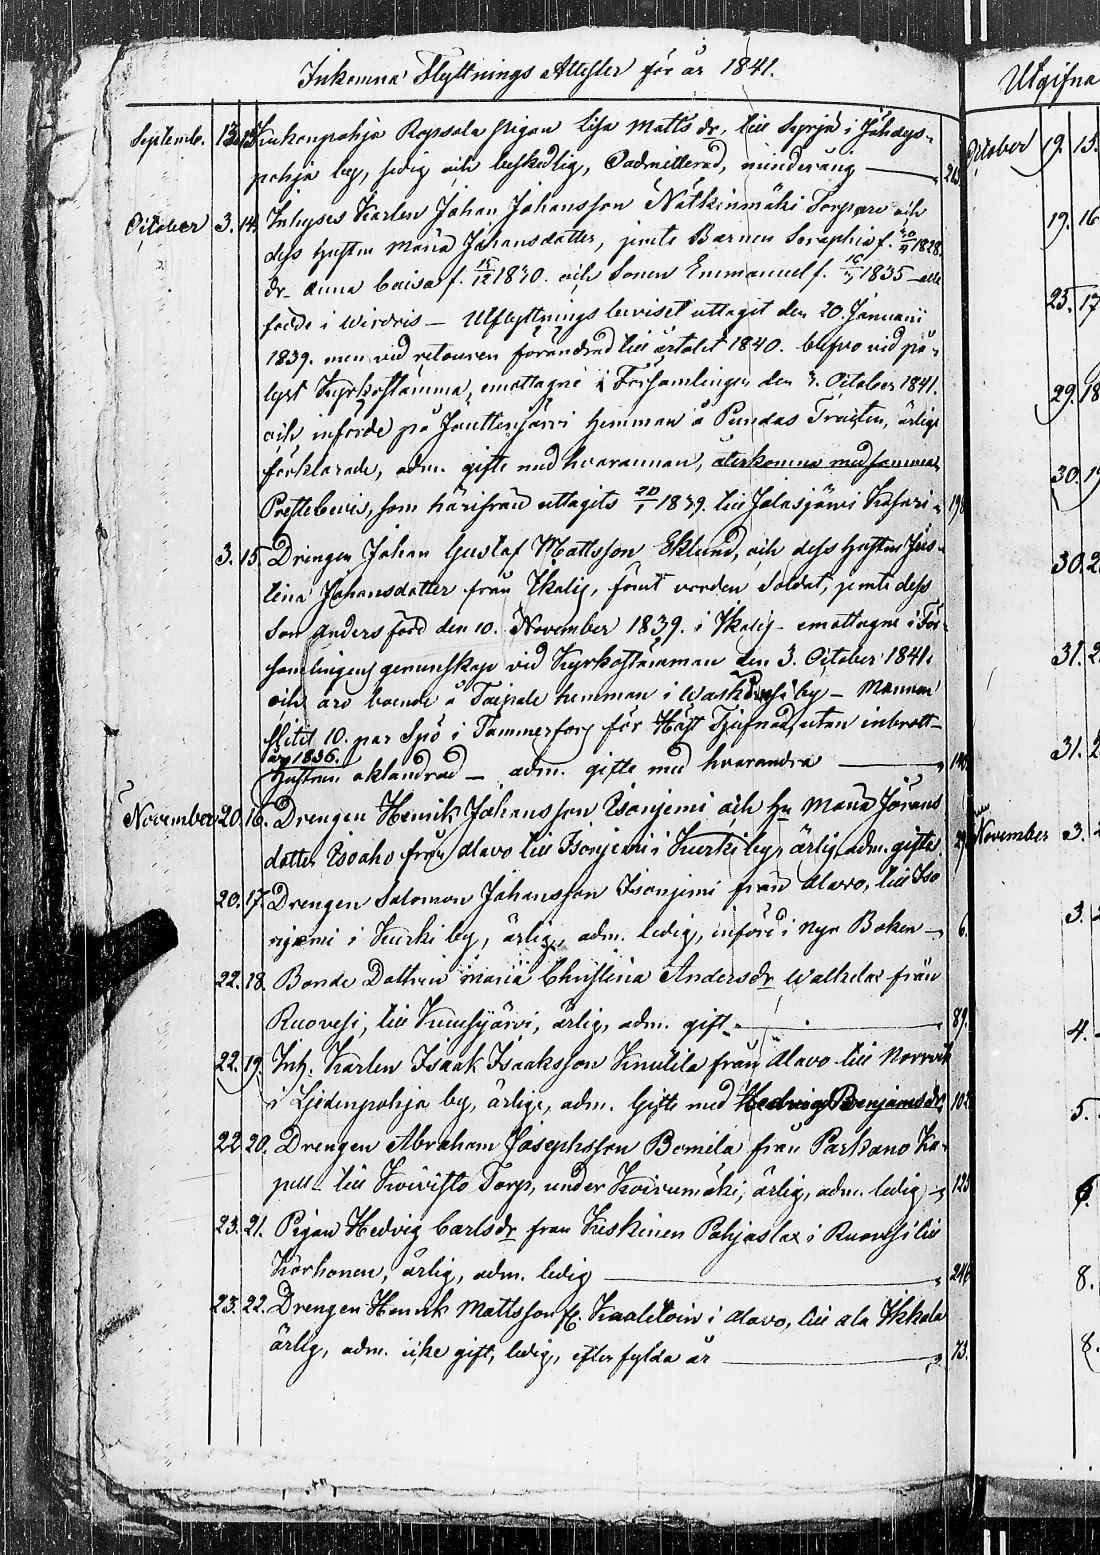 Inkomna Flyttnings Attester för år 1841.
Septemb. 13. 13. Kuhonpohja Ropsala pigan Lisa Matts dr, till Syrjä i Jähdys-
pohja by, sedig och beskedlig, Oadmitterad, minderårig
October 3. 14. Inhyses Karlen Johan Johansson Nätkinmäki Torpare och
dess hustru Maria Johansdotter, jemte Barnen Seraphia f. 1828.
dr. Anna Caisa f. 15/12 1830. och Sonen Emmanuel f. 1835 alle
födde i Wirdois — Utflyttnings beviset uttaget den 20. Januarii
1839. men vid retouren förändrad till årtalet 1840. blefvo vid på-
lyst Kyrkostämma, emottagne i Församlingen den 3. October 1841.
och införde på Jouttenjärvi hemman å Pundas Tracten, ärlige
förklarade, adm. gifte med hvarannan, återkomna med samma
Prestebevis, som härifrån uttagits 20/1 1839. till Jalasjärvi 198
3. 15. Drengen Johan Gustaf Mattsson Eklund, och dess hustru Jus-
tina Johansdotter från Ikalis, förut vorden Soldat, jemte dess
Son Anders född den 10. November 1839. i Ikalis — emottagne i För-
samlingens gemenskap vid Kyrkostämman den 3. October 1841.
och äro boende å Taipale hemman i by — Mannen
slitit 10. par Spö i Tammerfors för Häst Tjufnad, utan inbrott —
år 1836.
Hustrun oklandrad — adm. gifte med hvarandra
November 20. 16. Drengen Henrik Johansson Isoniemi och Hu Maria Jörans
dotter Isoaho från Alavo till Isoniemi i Kurki by, ärlig, adm. gifte. 29
20. 17. Drengen Salomon Johansson Isoniemi från Alavo, till Iso
niemi i Kurki by, ärlig, adm. ledig, införd i Nya Boken 6.
22. 18. Bonde Dottren Maria Christina Anders dr Walkelax från
Ruovesi, till Kuusijärvi, ärlig, adm. gift 89.
22. 19. Inh. Karlen Isaak Isaaksson Knutila från Alavo till Norrvik
i Liedenpohja by, ärlige, adm. Gifte med Hedvig Benjamins dr 102
22. 20. Drengen Abraham Josephsson Bomila från Parkano Ka-
pell till Koivisto Torp, under Koirumäki, ärlig, adm. ledig 123
23. 21. Pigan Hedvig Carls dr från Keskinen Pohjaslax i Ruovesi till
Korhonen, ärlig, adm. ledig 246
23. 22. Drengen Henrik Mattsson fr. i Alavo, till Ala Ikkala
ärlig, adm. icke gift, ledig, efter fylda år 73.
Utgifna
October 19. 15.
19. 16
25. 17
29. 18
30. 19
30. 2
31. 2
31. 2
November 3. 2
3. 2
4.
5.
6.
8.
8.